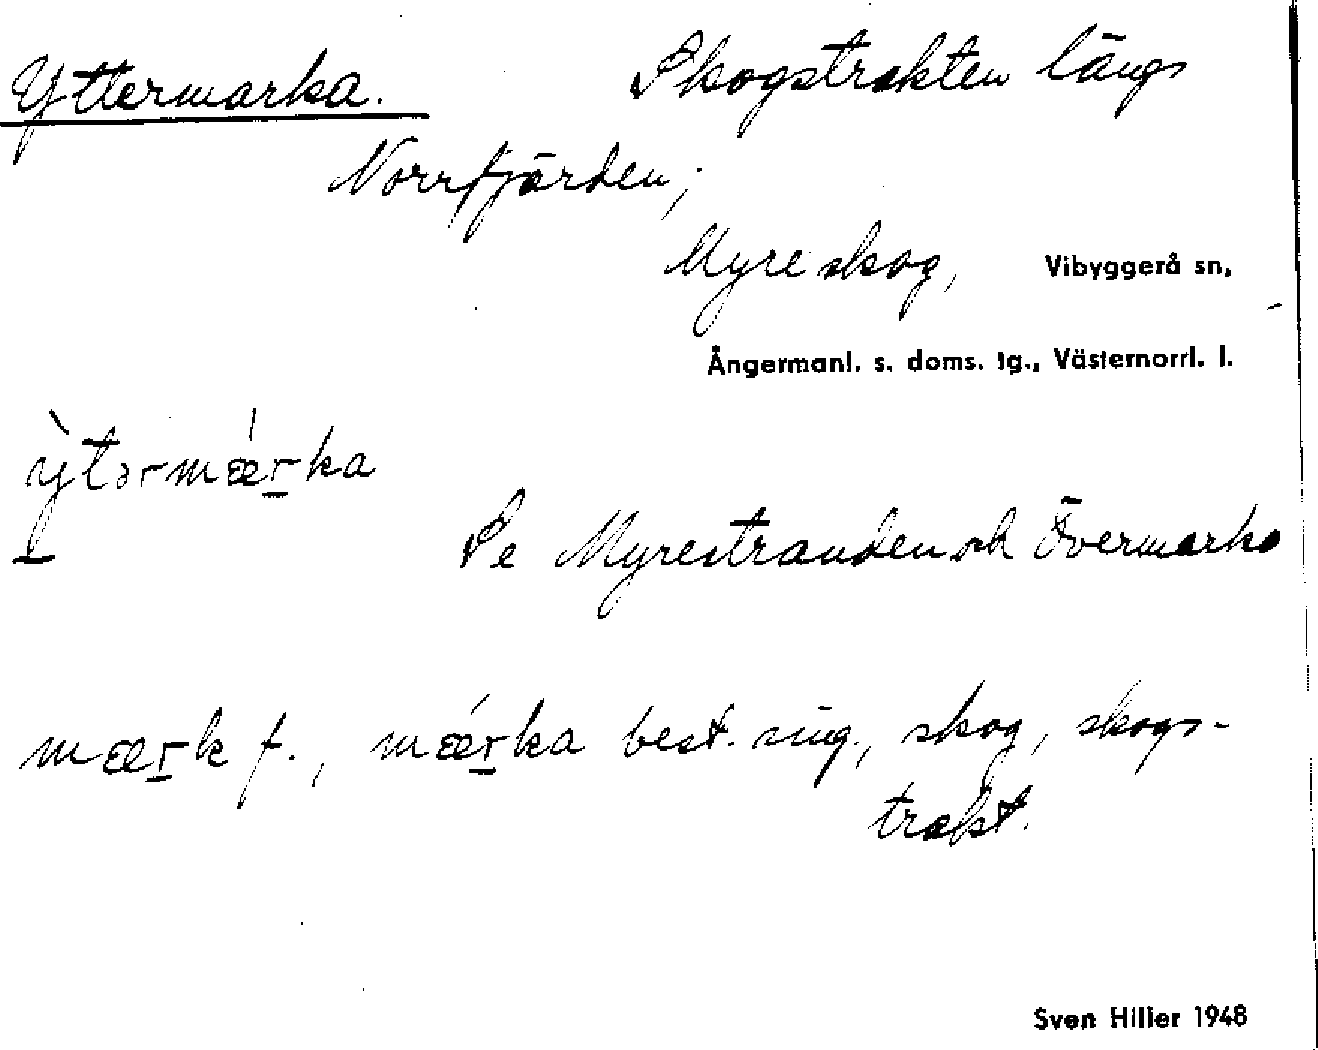 Yttermarka. Skogstrakten längs
Norrfjärden;
Myre skog, Vibyggerå sn,
Ångermanl. s. doms. tg., Västernorrl. l.
ỳtərmǽr̲ka
Se Myrestranden och Övermarka
mær̲k f., mǽr̲ka best. sing., skog, skogs-
trakt.
Sven Hiller 1948